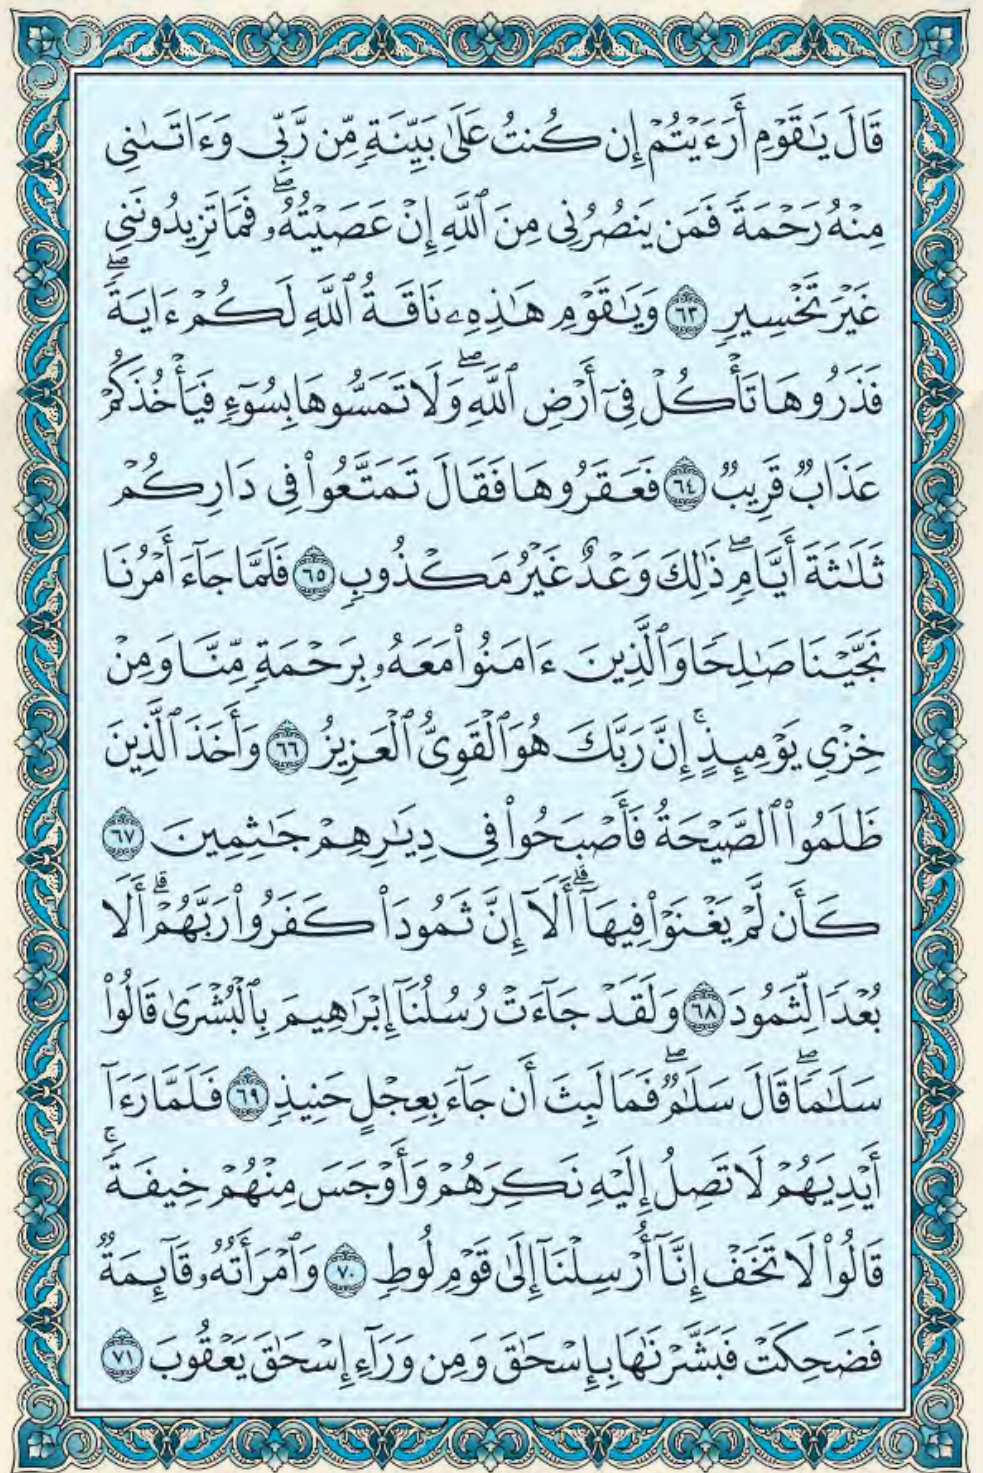 قَالَ يَـٰقَوْمِ أَرَءَيْتُمْ إِن كُنتُ عَلَىٰ بَيِّنَةٍ مِّن رَّبِّى وَءَاتَىٰنِى
مِنْهُ رَحْمَةً فَمَن يَنصُرُنِى مِنَ ٱللَّهِ إِنْ عَصَيْتُهُۥۖ فَمَا تَزِيدُونَنِى
غَيْرَ تَخْسِيرٍ ٦٣ وَيَـٰقَوْمِ هَـٰذِهِۦ نَاقَةُ ٱللَّهِ لَكُمْ ءَايَةًۖ
فَذَرُوهَا تَأْكُلْ فِىٓ أَرْضِ ٱللَّهِۖ وَلَا تَمَسُّوهَا بِسُوٓءٍ فَيَأْخُذَكُمْ
عَذَابٌ قَرِيبٌ ٦٤ فَعَقَرُوهَا فَقَالَ تَمَتَّعُوا۟ فِى دَارِكُمْ
ثَلَـٰثَةَ أَيَّامٍۖ ذَٰلِكَ وَعْدٌ غَيْرُ مَكْذُوبٍ ٦٥ فَلَمَّا جَآءَ أَمْرُنَا
نَجَّيْنَا صَـٰلِحًا وَٱلَّذِينَ ءَامَنُوا۟ مَعَهُۥ بِرَحْمَةٍ مِّنَّا وَمِنْ
خِزْىِ يَوْمِئِذٍۚ إِنَّ رَبَّكَ هُوَ ٱلْقَوِىُّ ٱلْعَزِيزُ ٦٦ وَأَخَذَ ٱلَّذِينَ
ظَلَمُوا۟ ٱلصَّيْحَةُ فَأَصْبَحُوا۟ فِى دِيَـٰرِهِمْ جَـٰثِمِينَ ٦٧
كَأَن لَّمْ يَغْنَوْا۟ فِيهَآۗ أَلَآ إِنَّ ثَمُودَا۟ كَفَرُوا۟ رَبَّهُمْۗ أَلَا
بُعْدًا لِّثَمُودَ ٦٨ وَلَقَدْ جَآءَتْ رُسُلُنَآ إِبْرَٰهِيمَ بِٱلْبُشْرَىٰ قَالُوا۟
سَلَـٰمًاۖ قَالَ سَلَـٰمٌۖ فَمَا لَبِثَ أَن جَآءَ بِعِجْلٍ حَنِيذٍ ٦٩ فَلَمَّا رَءَآ
أَيْدِيَهُمْ لَا تَصِلُ إِلَيْهِ نَكِرَهُمْ وَأَوْجَسَ مِنْهُمْ خِيفَةًۚ
قَالُوا۟ لَا تَخَفْ إِنَّآ أُرْسِلْنَآ إِلَىٰ قَوْمِ لُوطٍ ٧٠ وَٱمْرَأَتُهُۥ قَآئِمَةٌ
فَضَحِكَتْ فَبَشَّرْنَـٰهَا بِإِسْحَـٰقَ وَمِن وَرَآءِ إِسْحَـٰقَ يَعْقُوبَ ٧١